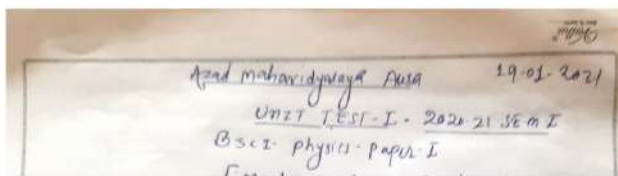 Azad Mahavidyalaya Ausa 19-01-2021
UNIT TEST-I - 2020-21 SEM I
BSc I - physics - paper - I